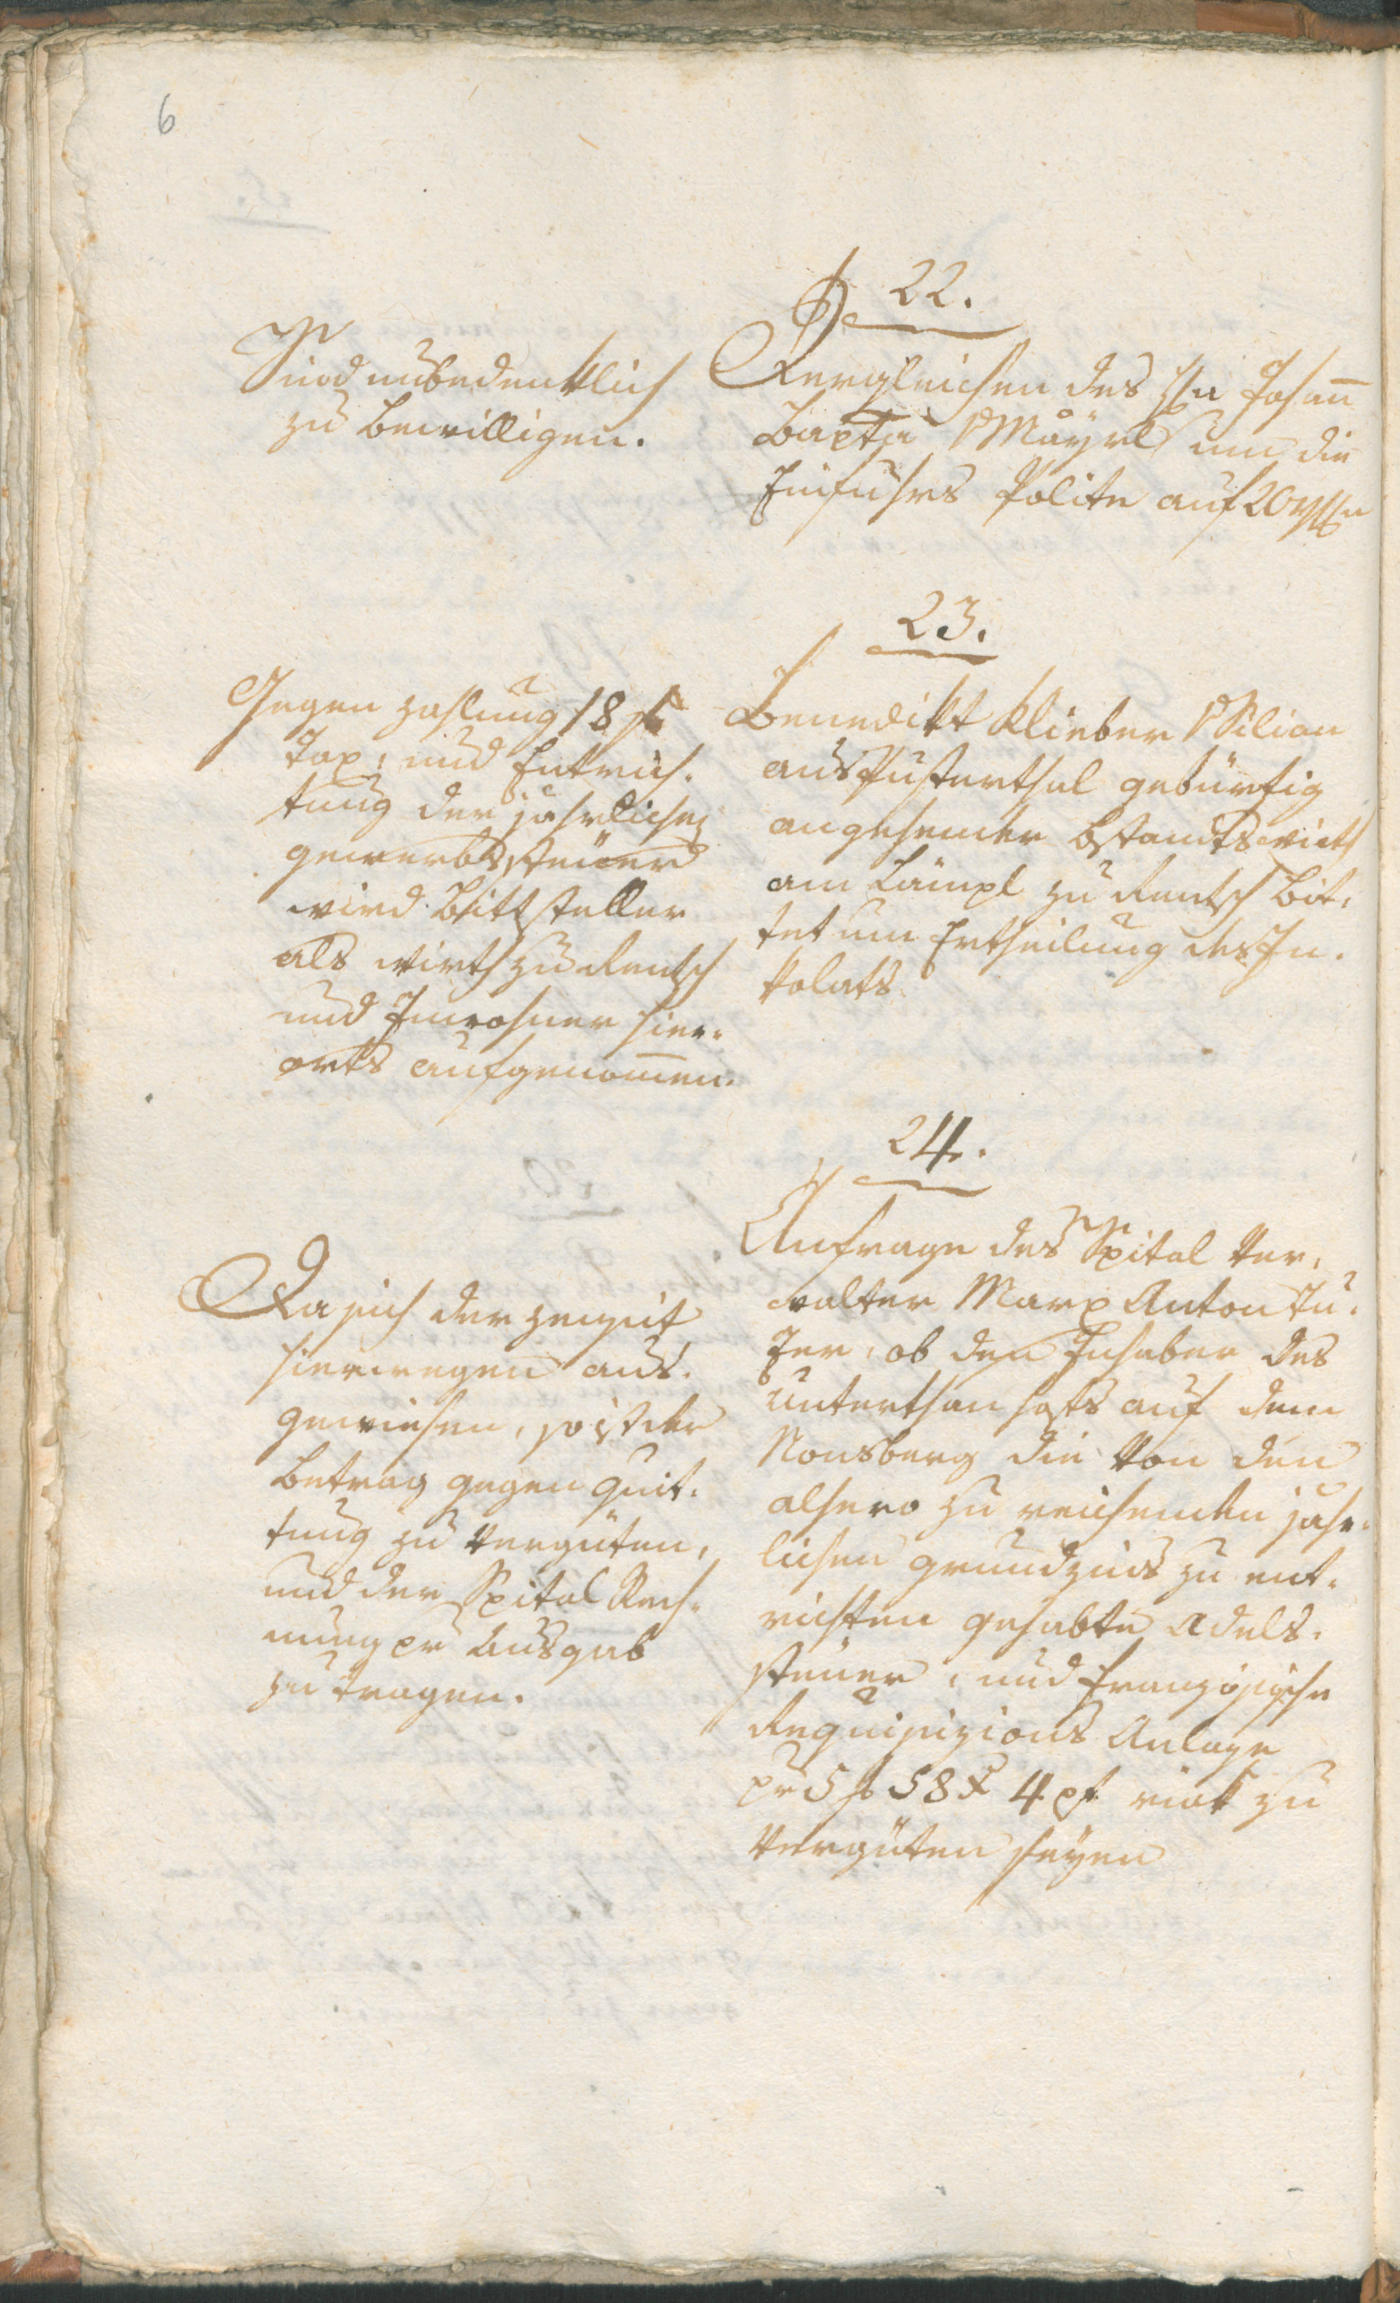 6
22.
Sind unbedenklich
zu bewilligen.
Dergleichen des Hn Johann
Bapt: Mäyrl um die
Einfuhrs Polite auf 20 Yhn
23.
Gegen zahlung 18 f
Tax, und Entrich-
tung der jährlichen
gewerbssteuer
wird Bittsteller
als wirth zu Rentsch
und Inwohner hier-
orts aufgenommen.
Benedikt Klieber Silian
aus Pusterthal gebürtig
angehender bstandtswirth
am Lämpl zu Rentsch bit-
tet um Ertheilung des In-
kolats
24.
Da sich der zensit
hierwegen aus-
gewiesen, so ist der
betrag gegen quit-
tung zu vergüten,
und der Spital Rech-
nung pr Ausgab
zu tragen.
Anfrage des Spital Ver-
walter Marx Anton Tu-
zer, ob den Inhaber des
Unterthan hofs auf dem
Nonsberg die von den
alhero zu reichenden jähr-
lichen grundzins zu ent-
richten gehabte Adels-
steuer, und französische
Requisizions Anlage
pr 5 f 58 x 4 pf rükzu
vergüten seyen